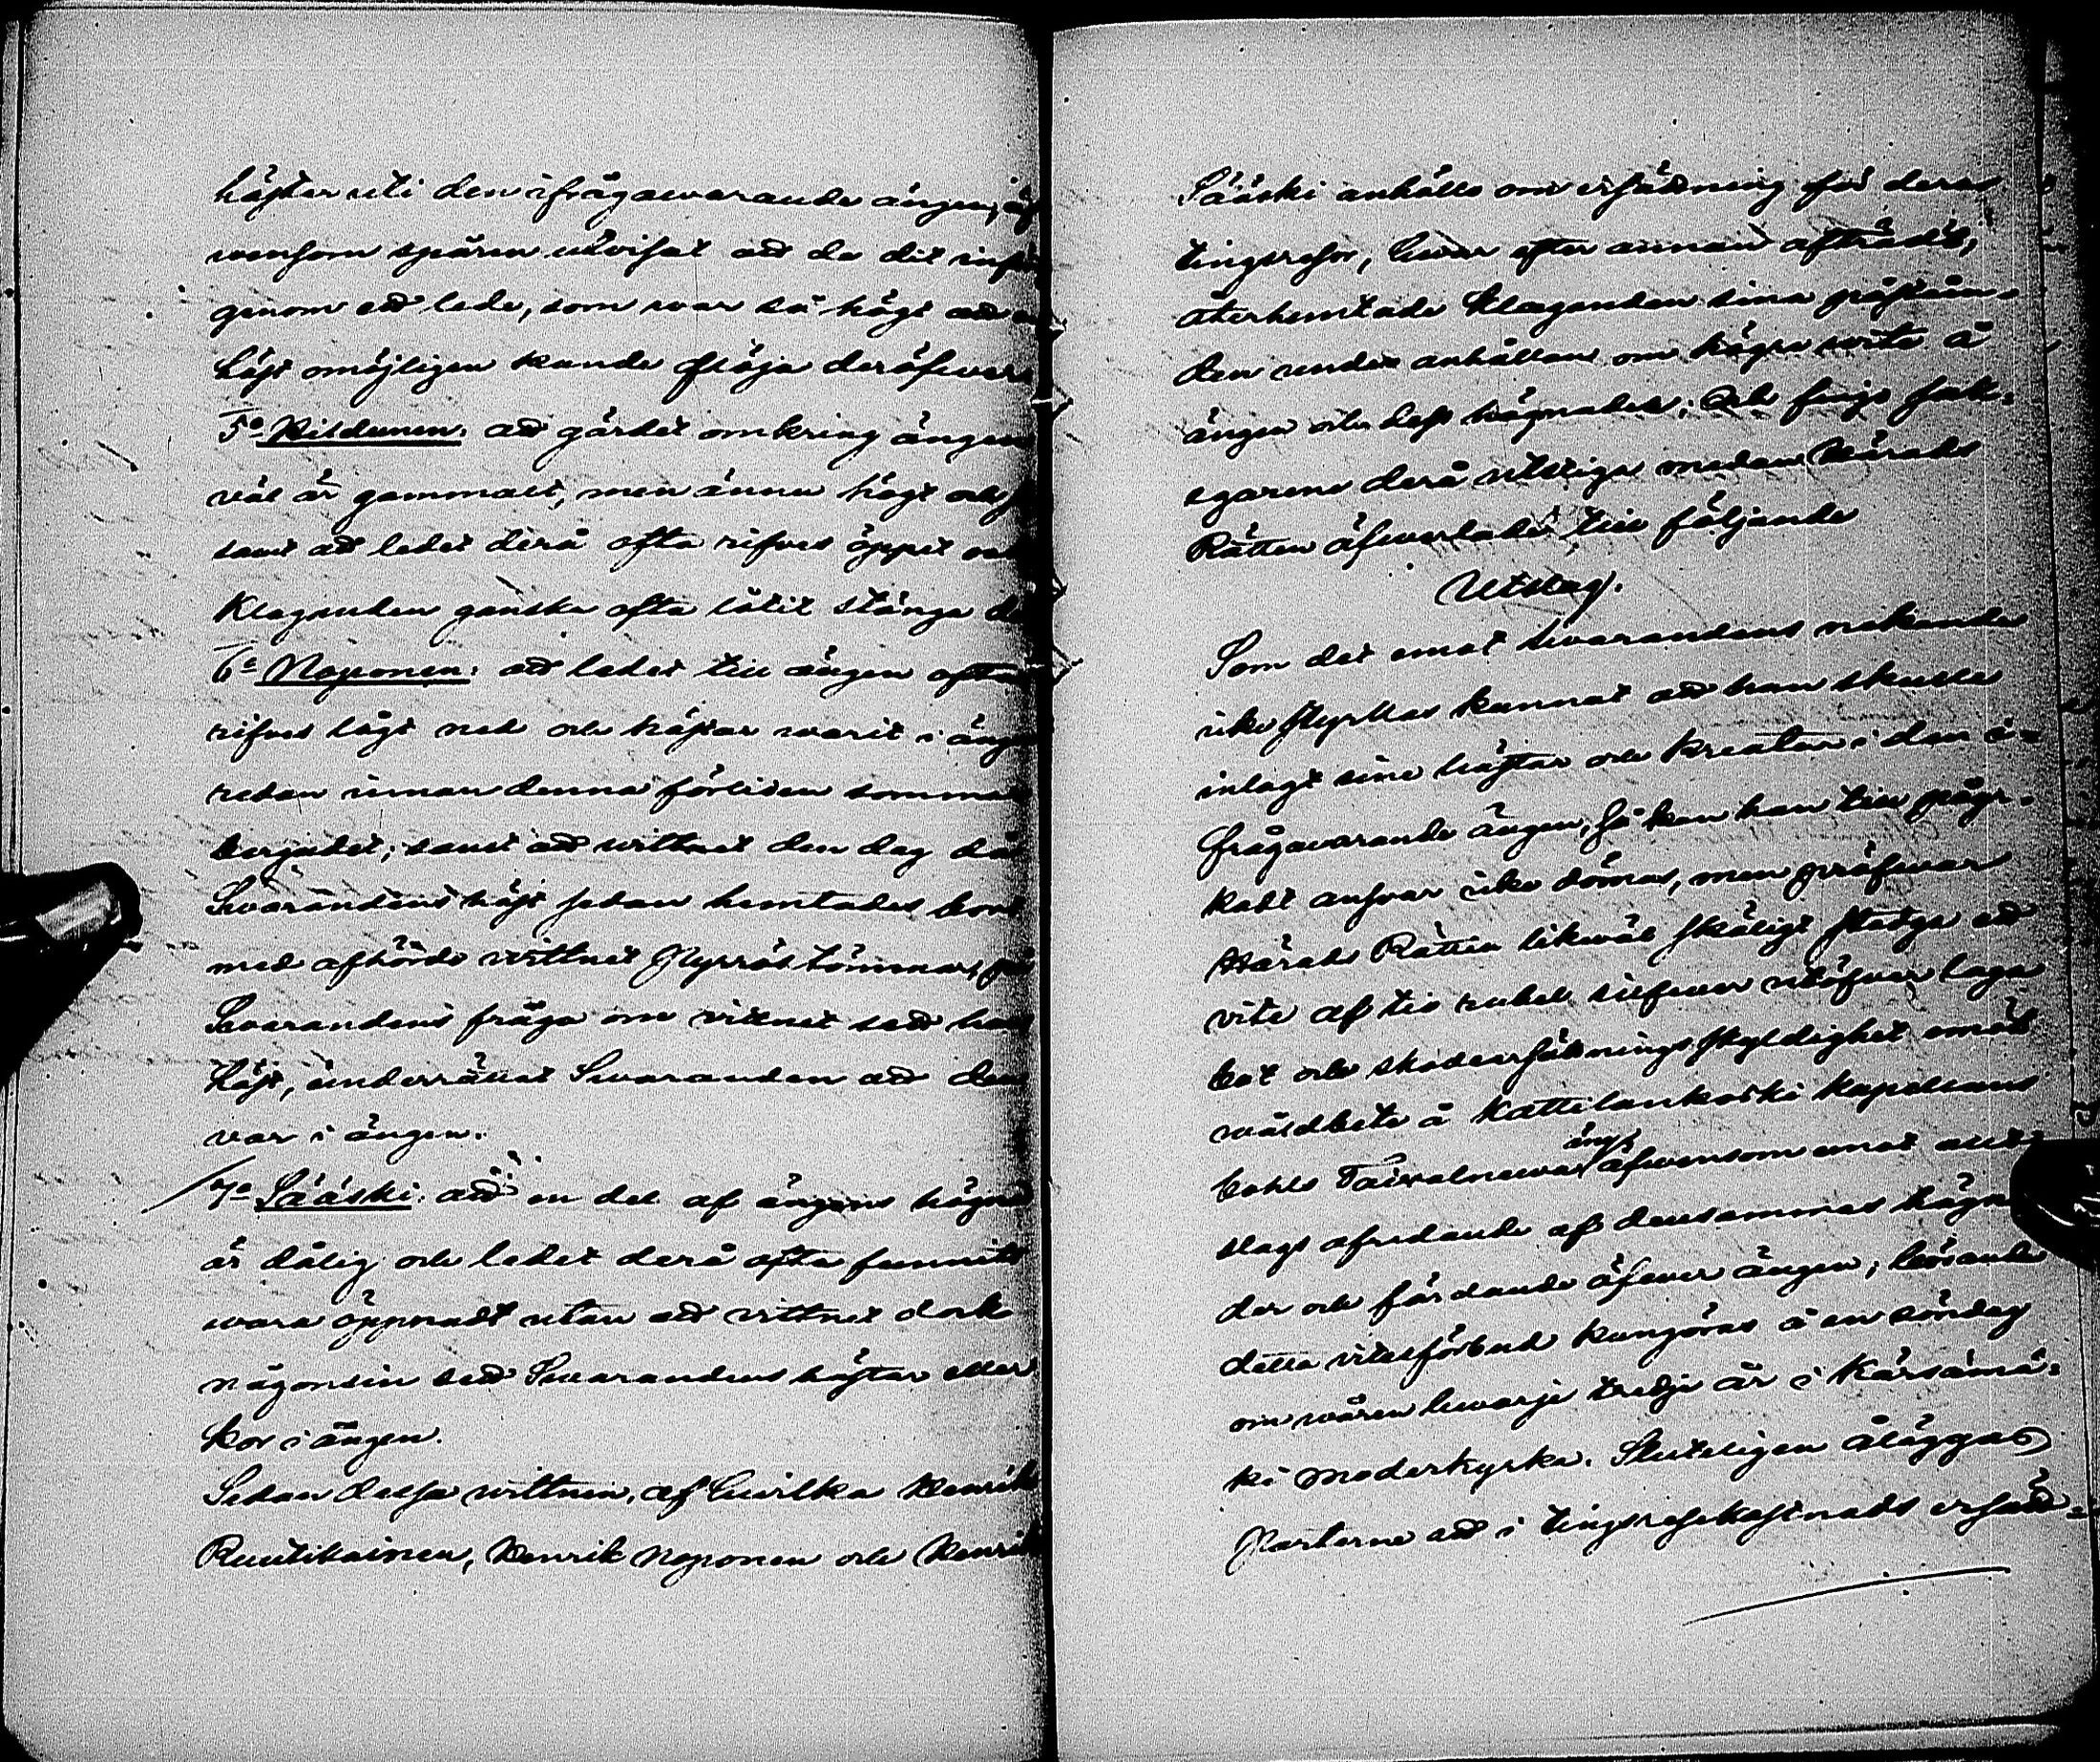 hästar uti den ifrågawarande ängen, äf
wensom spåren utvisat att de dit
genom ett lede, som war så högt att
häst omöjligen kunde flöja deröfwer.
5o att gärdet omkring ängen
väl är gammalt, men ännu högt och
samt att ledet derå ofta rifves öppet
Klaganden ganska ofta låtit stänga
6o Noponen: att ledet till ängen ofta
rifves lågt ned och hästar warit i änge
redan innan denna förliden sommar
bergades; samt att wittnet den dag då
Swarandens häst sedan hemtades bort
med afhörde wittnet på
Swarandens fråga om vittnet sett hans
häst, underrättat Swaranden att den
var i ängen.
7o Sääski: att en del af ängens hägnad
är dålig och ledet derå ofta funnits
wara öppnadt utan att vittnet dock
någonsin sett Swarandens hästar eller
kor i ängen.
Sedan dessa wittnen, af hwilka Henrik
Ruutikainen, Henrik Noponen och Henrik
Sääski anhöllo om ersättning för deras
tingsresor, hwar efter annan afträdt,
återhemtade Klaganden sina påståen-
den under anhållan om högre wite å
ängen och dess hägnader; Och fingo sak-
egarene derå utstiga medan Härads
Rätten öfwerlade till följande
Utslag.
Som det emot Swarandens nekande
icke styrkas kunnat att han skulle
inlagt sine hästar och kreatur i den i-
frågawarande ängen, så kan han till påyr-
kadt answar icke dömas, men pröfwar
Härads Rätten likwäl skäligt stadga ett
vite af tio rubel silfwer utöfwer laga
bot och skadeersättnings skyldighet emot
wåldbete å Kattilankoski kapellans
bohls Taivalnewa äng äfwensom emot allt
slags ofredande af densammas hägna
der och färdande öfwer ängen; börande
detta vitesförbud kungöras å en söndag
om wåren hwarje tredje år i Kärsämä-
ki moderkyrka. Sluteligen åläggas
Parterne att i tingsresekostnads ersätt-